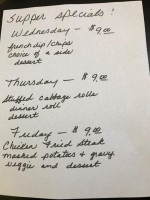 Supper specials!
Wednesday — $9.00
french dip/chips
choice of a side
dessert
Thursday — $9.00
Stuffed cabbage rolls
dinner roll
dessert
Friday — $9.00
Chicken Fried Steak
mashed potatoes & gravy
veggie and dessert